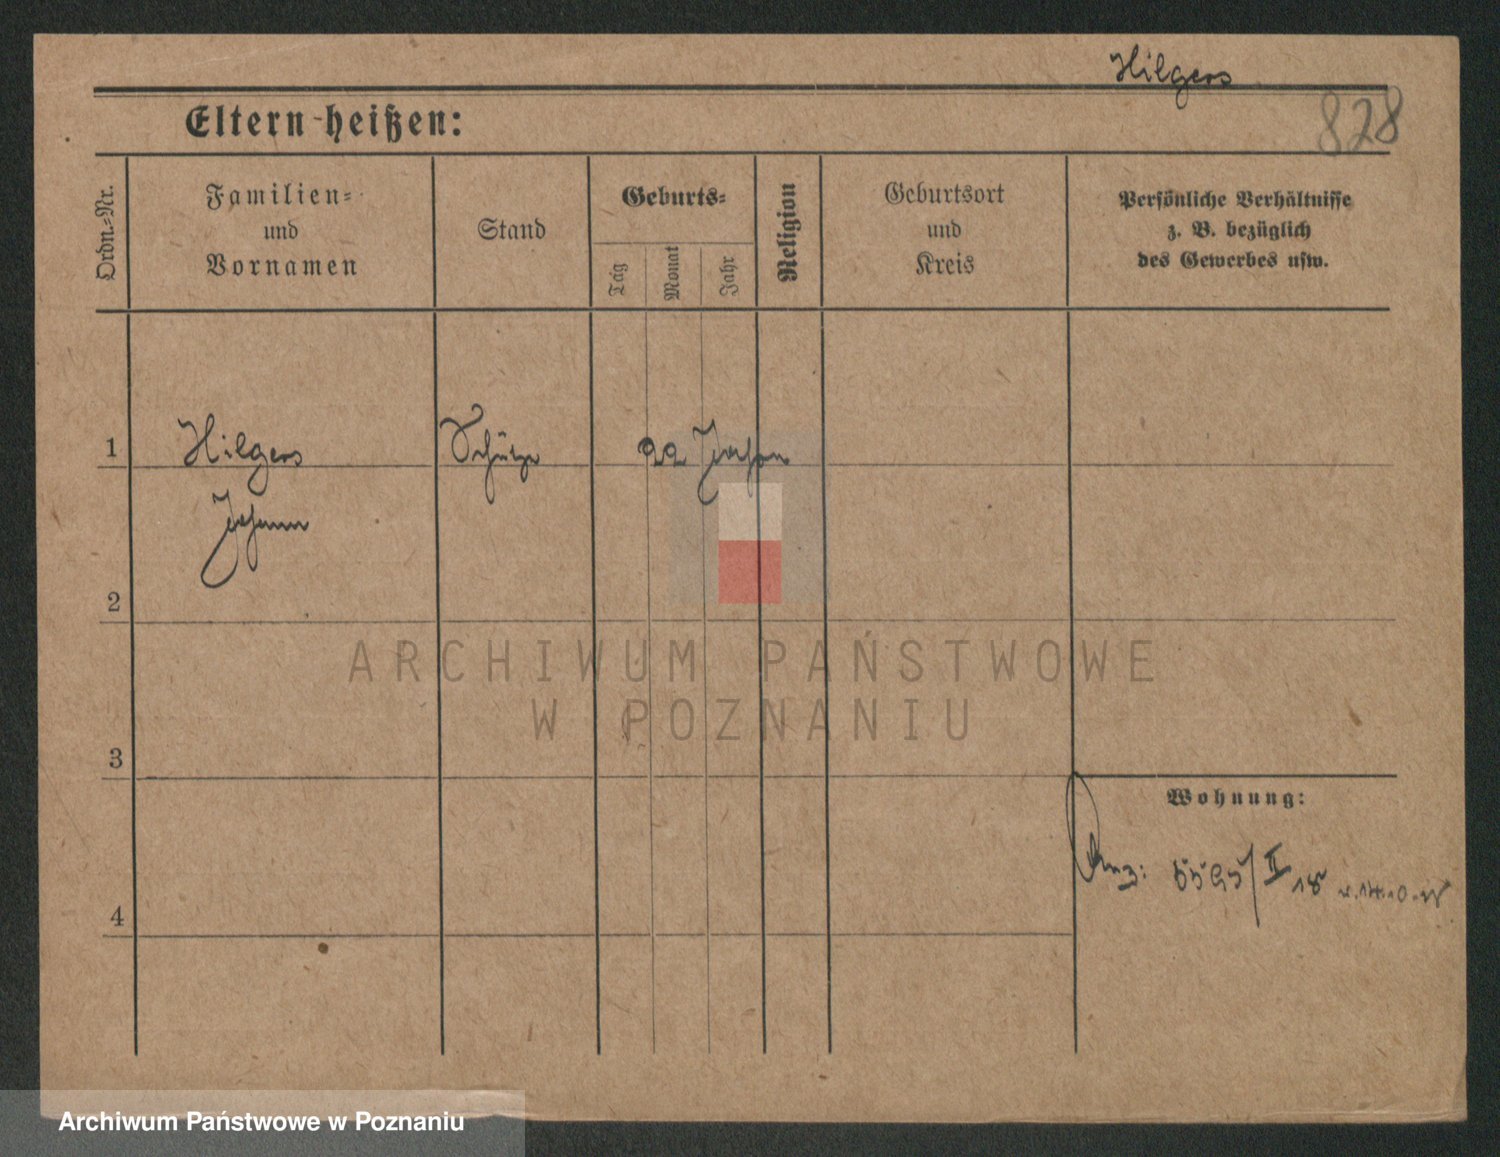 Hilgers
828
Eltern heißen:
Ordn.-Nr.
Familien-
und
Vornamen
Stand
Geburts-
Tag
Monat
Jahr
Religion
Geburtsort
und
Kreis
Persönliche Verhältnisse
z. B. bezüglich
des Gewerbes usw.
1
Hilgers
Schütze
22 Jahre
Johann
2
ARCHIWUM PAŃSTWOWE
W POZNANIU
3
Wohnung:
II 18
4
Archiwum Państwowe w Poznaniu